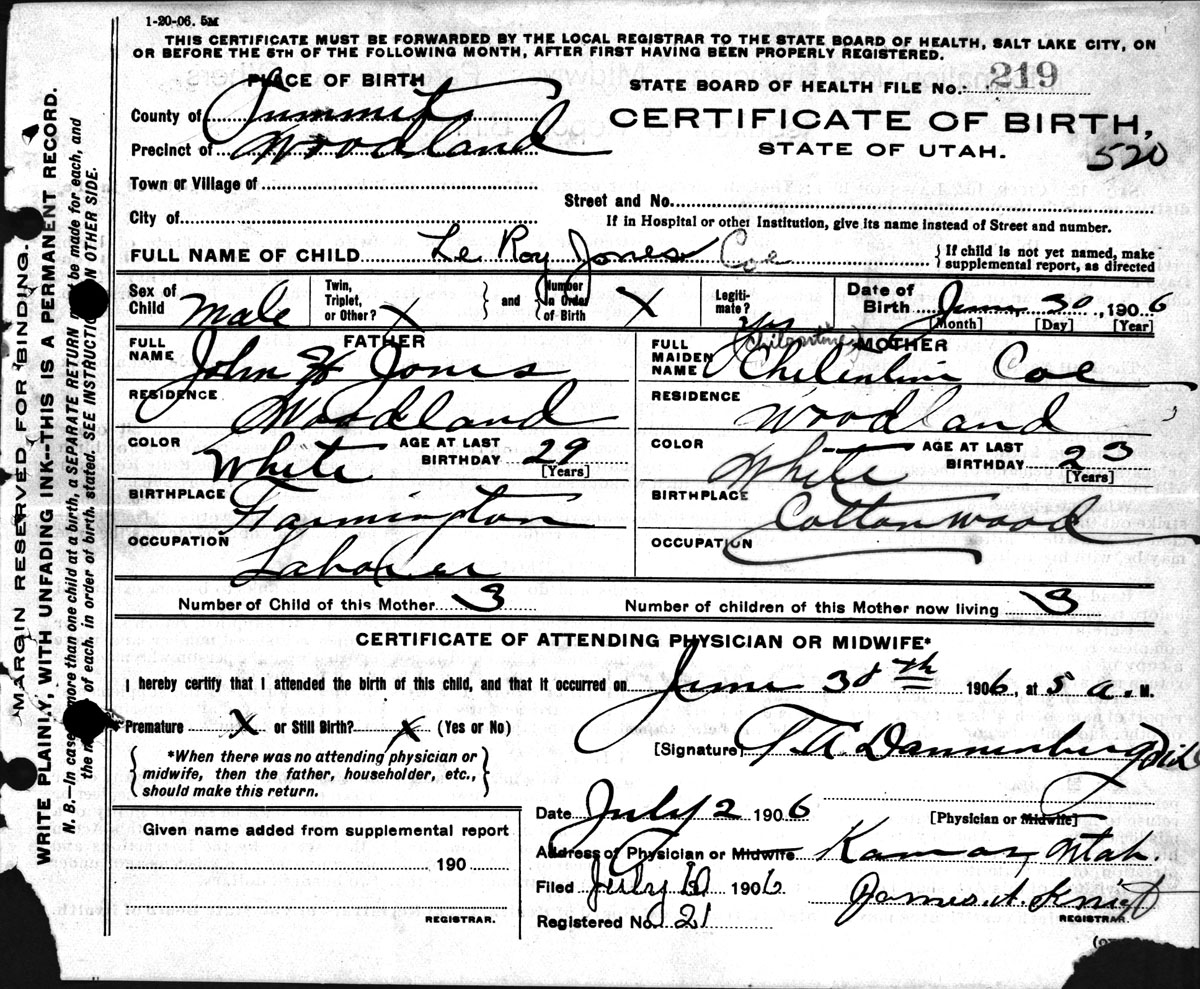 1-20-06. 5M
THIS CERTIFICATE MUST BE FORWARDED BY THE LOCAL REGISTRAR TO THE STATE BOARD OF HEALTH, SALT LAKE CITY, ON
OR BEFORE THE 5TH OF THE FOLLOWING MONTH, AFTER FIRST HAVING BEEN PROPERLY REGISTERED.
PLACE OF BIRTH
STATE BOARD OF HEALTH FILE No. 219
County of Summit
CERTIFICATE OF BIRTH,
Precinct of Woodland
STATE OF UTAH.
520
Town or Village of
Street and No.
City of
If in Hospital or other Institution, give its name instead of Street and number.
FULL NAME OF CHILD Le Roy Jones Coe {If child is not yet named, make supplemental report, as directed
Sex of Child Male
Twin, Triplet, or Other? X } and { Number in Order of Birth X
Legitimate? Yes
Date of Birth June 30, 1906
[Month] [Day] [Year]
FATHER
FULL NAME John H Jones
RESIDENCE Woodland
COLOR White AGE AT LAST BIRTHDAY 29 [Years]
BIRTHPLACE Farmington
OCCUPATION Laborer
MOTHER
FULL MAIDEN NAME Coe
RESIDENCE Woodland
COLOR White AGE AT LAST BIRTHDAY 23 [Years]
BIRTHPLACE Cottonwood
OCCUPATION
Number of Child of this Mother 3 Number of children of this Mother now living 3
CERTIFICATE OF ATTENDING PHYSICIAN OR MIDWIFE*
I hereby certify that I attended the birth of this child, and that it occurred on June 30th 1906, at 5 a. M.
Premature X or Still Birth? X (Yes or No)
[Signature] Dannenburg
{*When there was no attending physician or
midwife, then the father, householder, etc.,
should make this return.}
Date July 2 1906
[Physician or Midwife]
Given name added from supplemental report
190
REGISTRAR.
Address of Physician or Midwife Kamas, Utah.
Filed July 10 1906
James A.
REGISTRAR.
Registered No. 21
MARGIN RESERVED FOR BINDING.
WRITE PLAINLY, WITH UNFADING INK--THIS IS A PERMANENT RECORD.
N. B.—In case more than one child at a birth, a SEPARATE RETURN must be made for each, and
the number of each, in order of birth, stated. SEE INSTRUCTIONS ON OTHER SIDE.